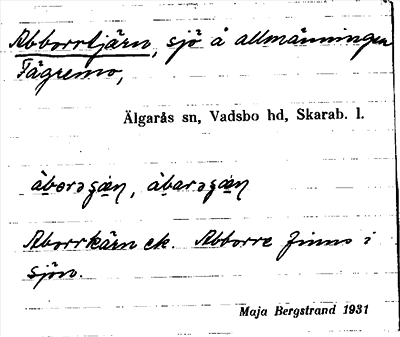 Abborrtjärn, sjö å allmänningen
Fägremo,
Älgarås sn, Vadsbo hd, Skarab. l.
Aborrkärn ek. Abborre finns i
sjön.
Maja Bergstrand 1931